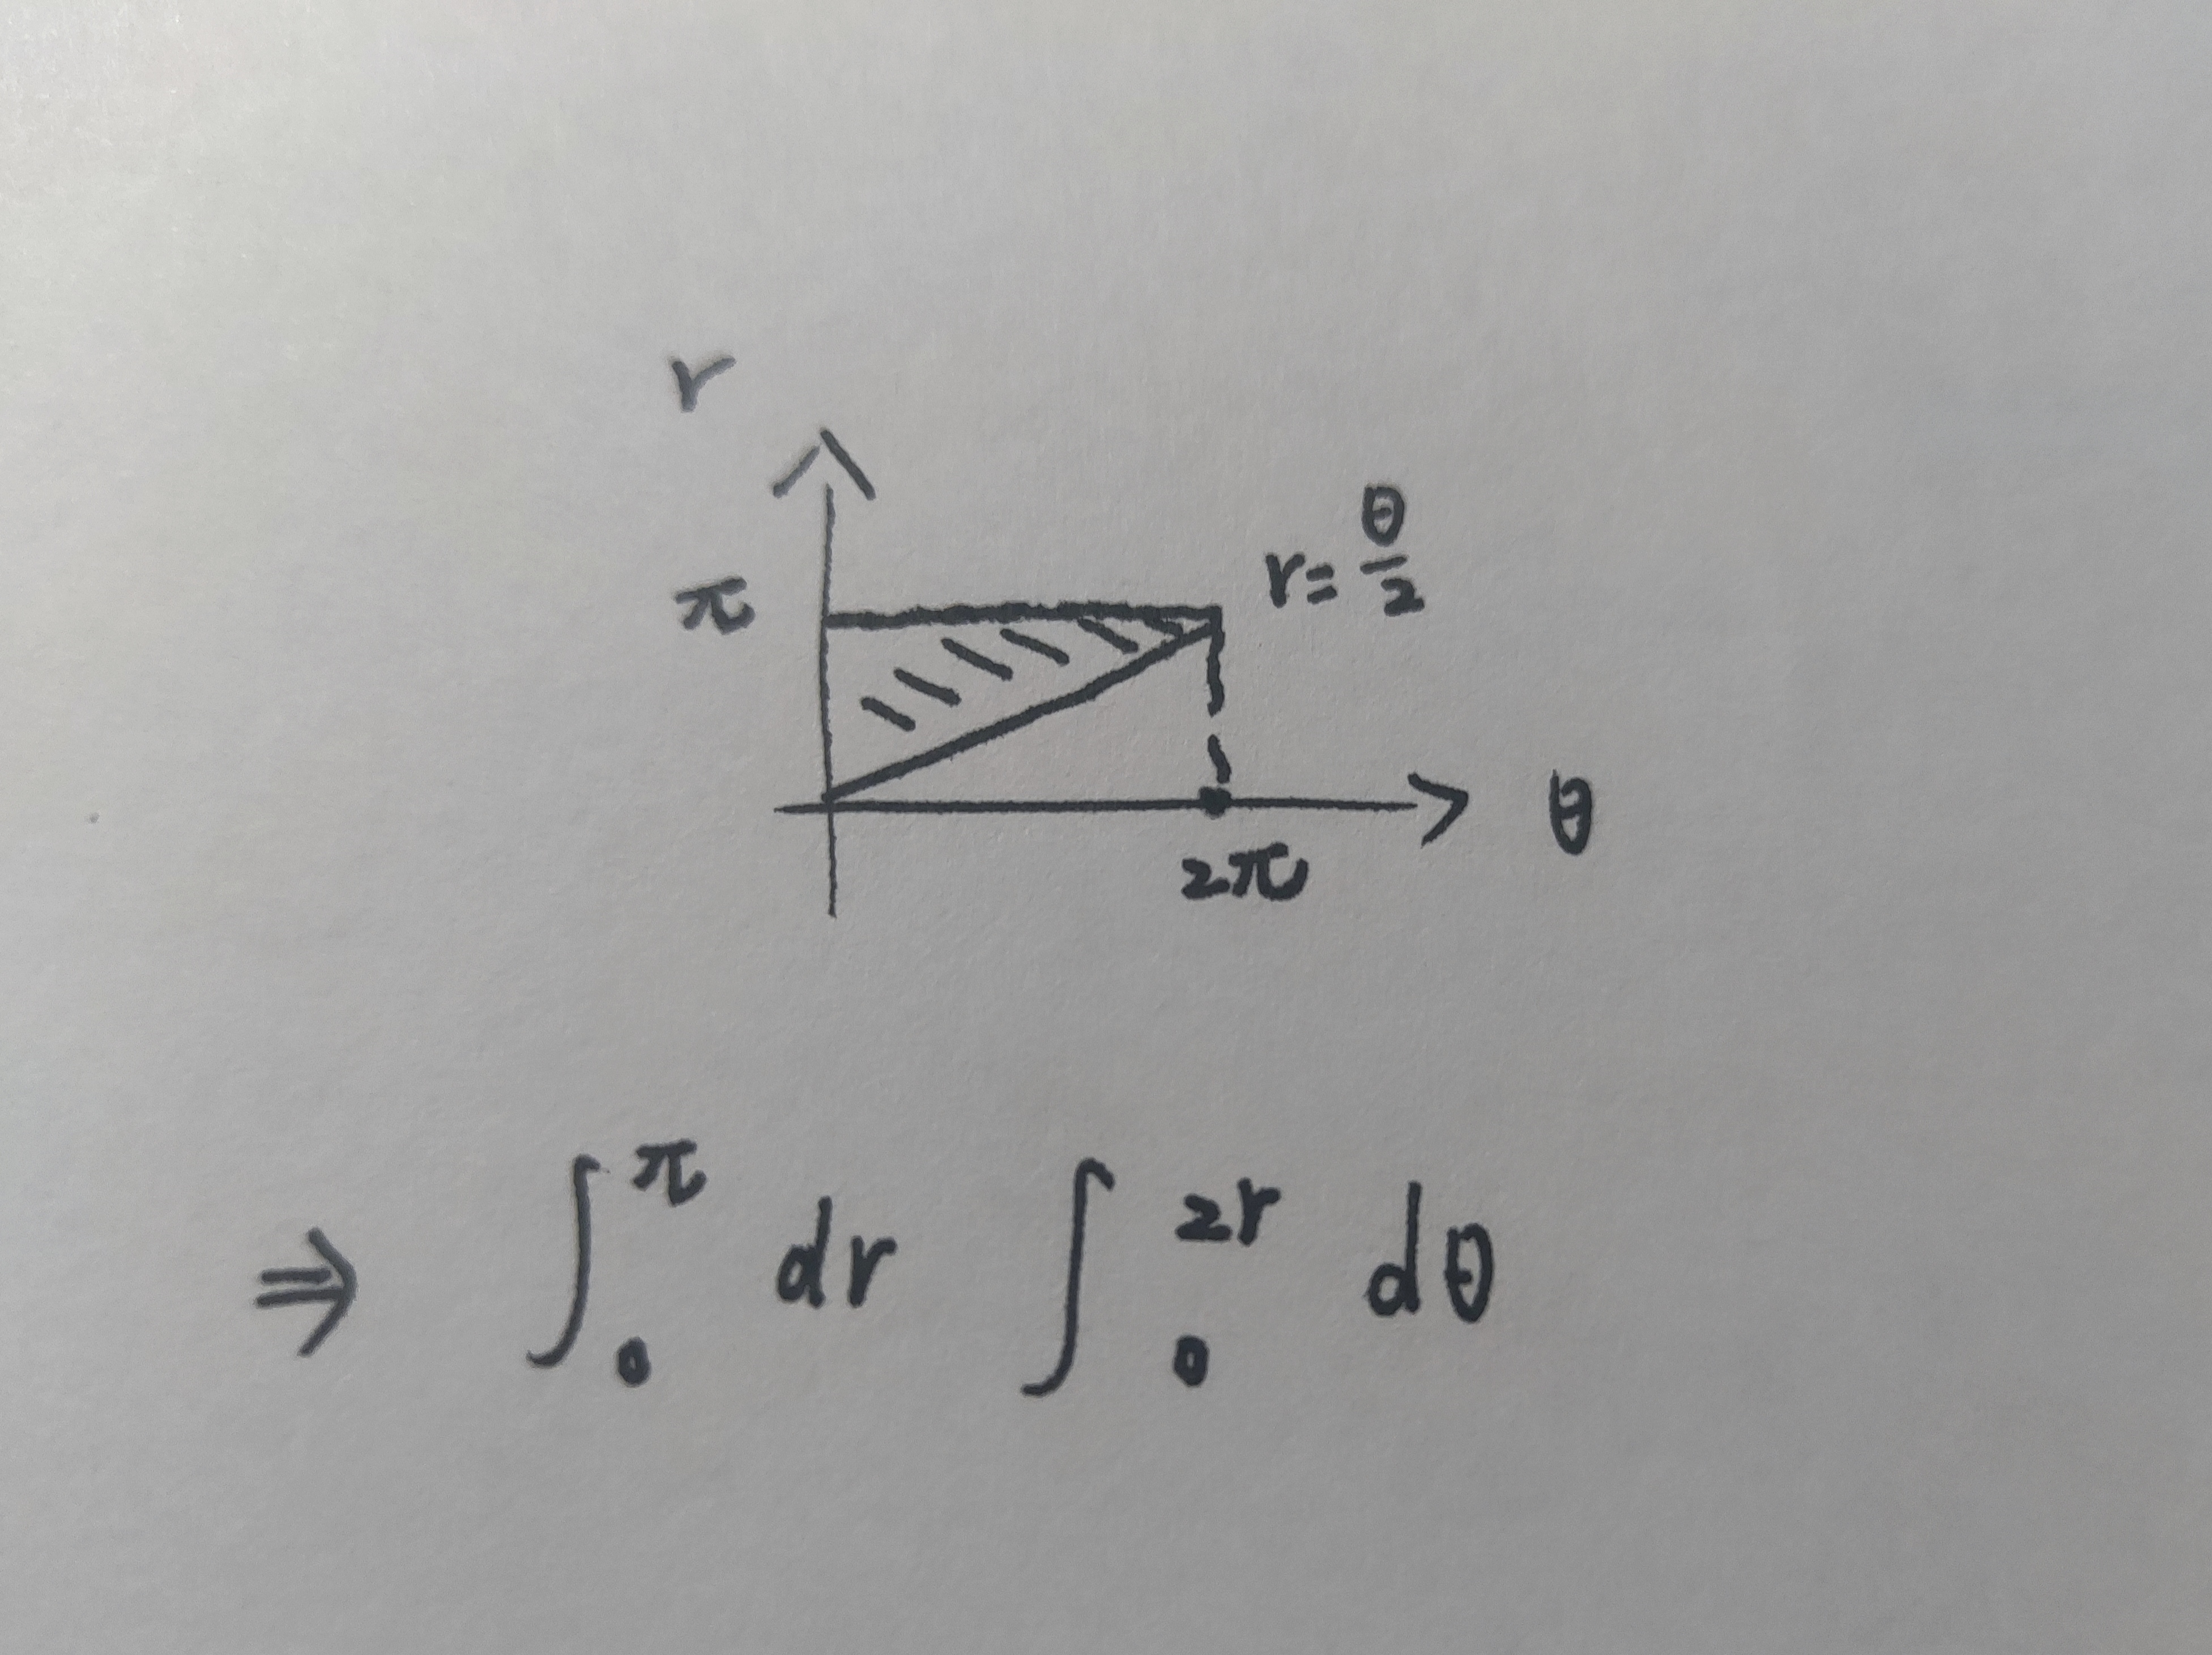 r
π
r = θ/2
θ
2π
⇒ ∫₀^π dr ∫₀^2r dθ